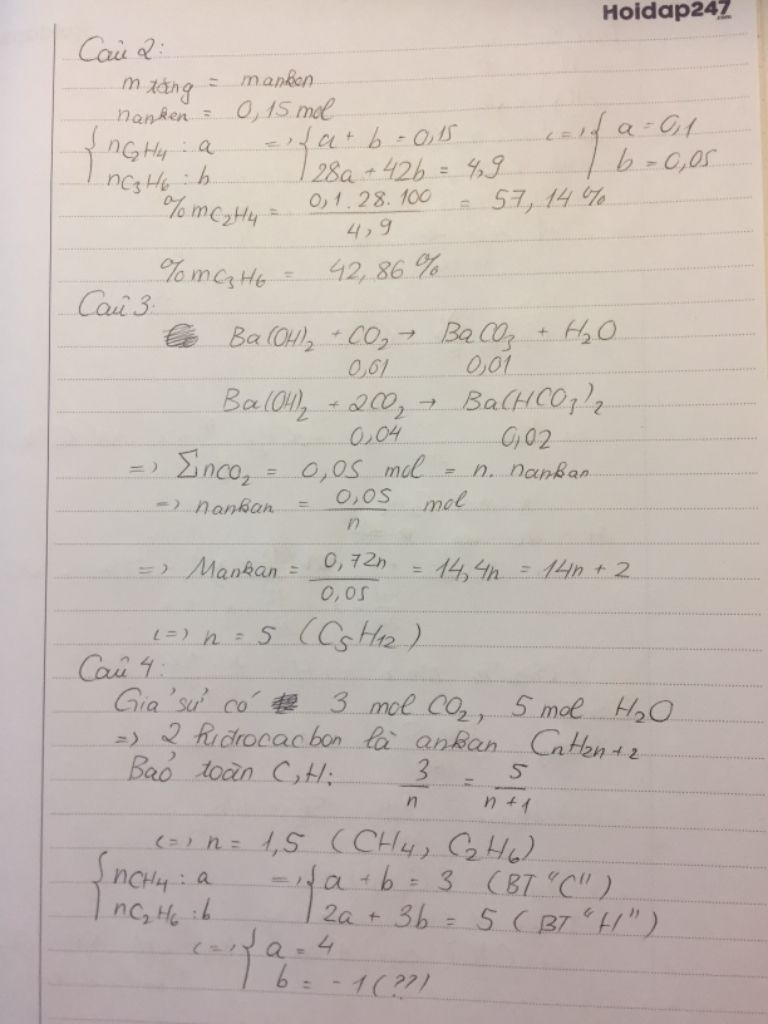 Hoidap247.com
Câu 2:
m tăng = manken
nanken = 0,15 mol
{ nC2H4 : a => { a + b = 0,15 <=> { a = 0,1
nC3H6 : b 28a + 42b = 4,9 b = 0,05
%mC2H4 = 0,1.28.100 / 4,9 = 57,14 %
%mC3H6 = 42,86 %
Câu 3:
Ba(OH)2 + CO2 → BaCO3 + H2O
0,01 0,01
Ba(OH)2 + 2CO2 → Ba(HCO3)2
0,04 0,02
=> ΣnCO2 = 0,05 mol = n. nankan
=> nankan = 0,05 / n mol
=> Mankan = 0,72n / 0,05 = 14,4n = 14n + 2
<=> n = 5 (C5H12)
Câu 4:
Giả sử có 3 mol CO2, 5 mol H2O
=> 2 hidrocacbon là ankan CnH2n+2
Bảo toàn C,H: 3 / n = 5 / n+1
<=> n = 1,5 (CH4, C2H6)
{ nCH4 : a => { a + b = 3 (BT "C")
nC2H6 : b 2a + 3b = 5 (BT "H")
<=> { a = 4
b = -1 (??)